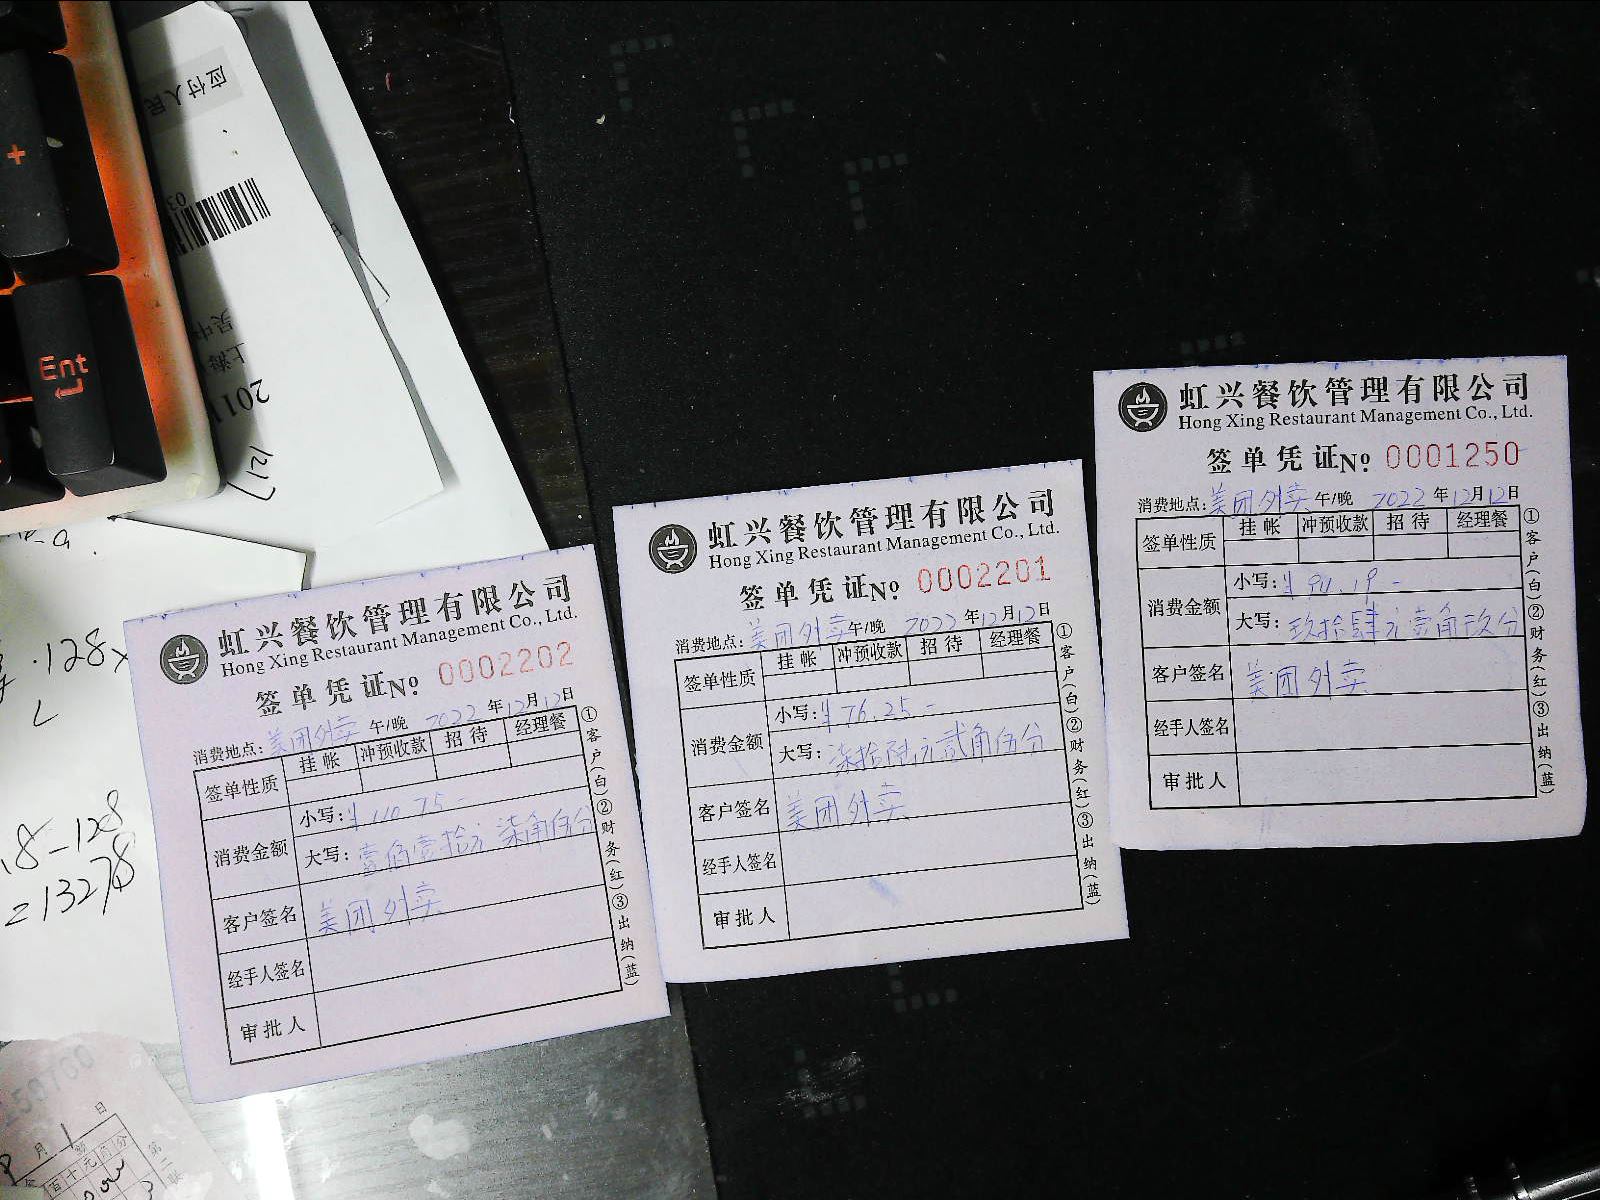 +
Ent
应付人民
03
吴中
上海
2011
(21)
.128×
.8-128
=13278
虹兴餐饮管理有限公司
Hong Xing Restaurant Management Co., Ltd.
签单凭证No 0002202
消费地点:美团外卖 午/晚 2022年12月12日
签单性质 挂帐 冲预收款 招待 经理餐
消费金额 小写:¥110.75-
大写:壹佰壹拾元柒角伍分
客户签名 美团外卖
经手人签名
审批人
①客户(白)②财务(红)③出纳(蓝)
虹兴餐饮管理有限公司
Hong Xing Restaurant Management Co., Ltd.
签单凭证No 0002201
消费地点:美团外卖午/晚 2022年12月12日
签单性质 挂帐 冲预收款 招待 经理餐
消费金额 小写:¥76.25-
大写:柒拾陆元贰角伍分
客户签名 美团外卖
经手人签名
审批人
①客户(白)②财务(红)③出纳(蓝)
虹兴餐饮管理有限公司
Hong Xing Restaurant Management Co., Ltd.
签单凭证No 0001250
消费地点:美团外卖午/晚 2022年12月12日
签单性质 挂帐 冲预收款 招待 经理餐
消费金额 小写:¥94.19-
大写:玖拾肆元壹角玖分
客户签名 美团外卖
经手人签名
审批人
①客户(白)②财务(红)③出纳(蓝)
月1日
百十元角分
第二联